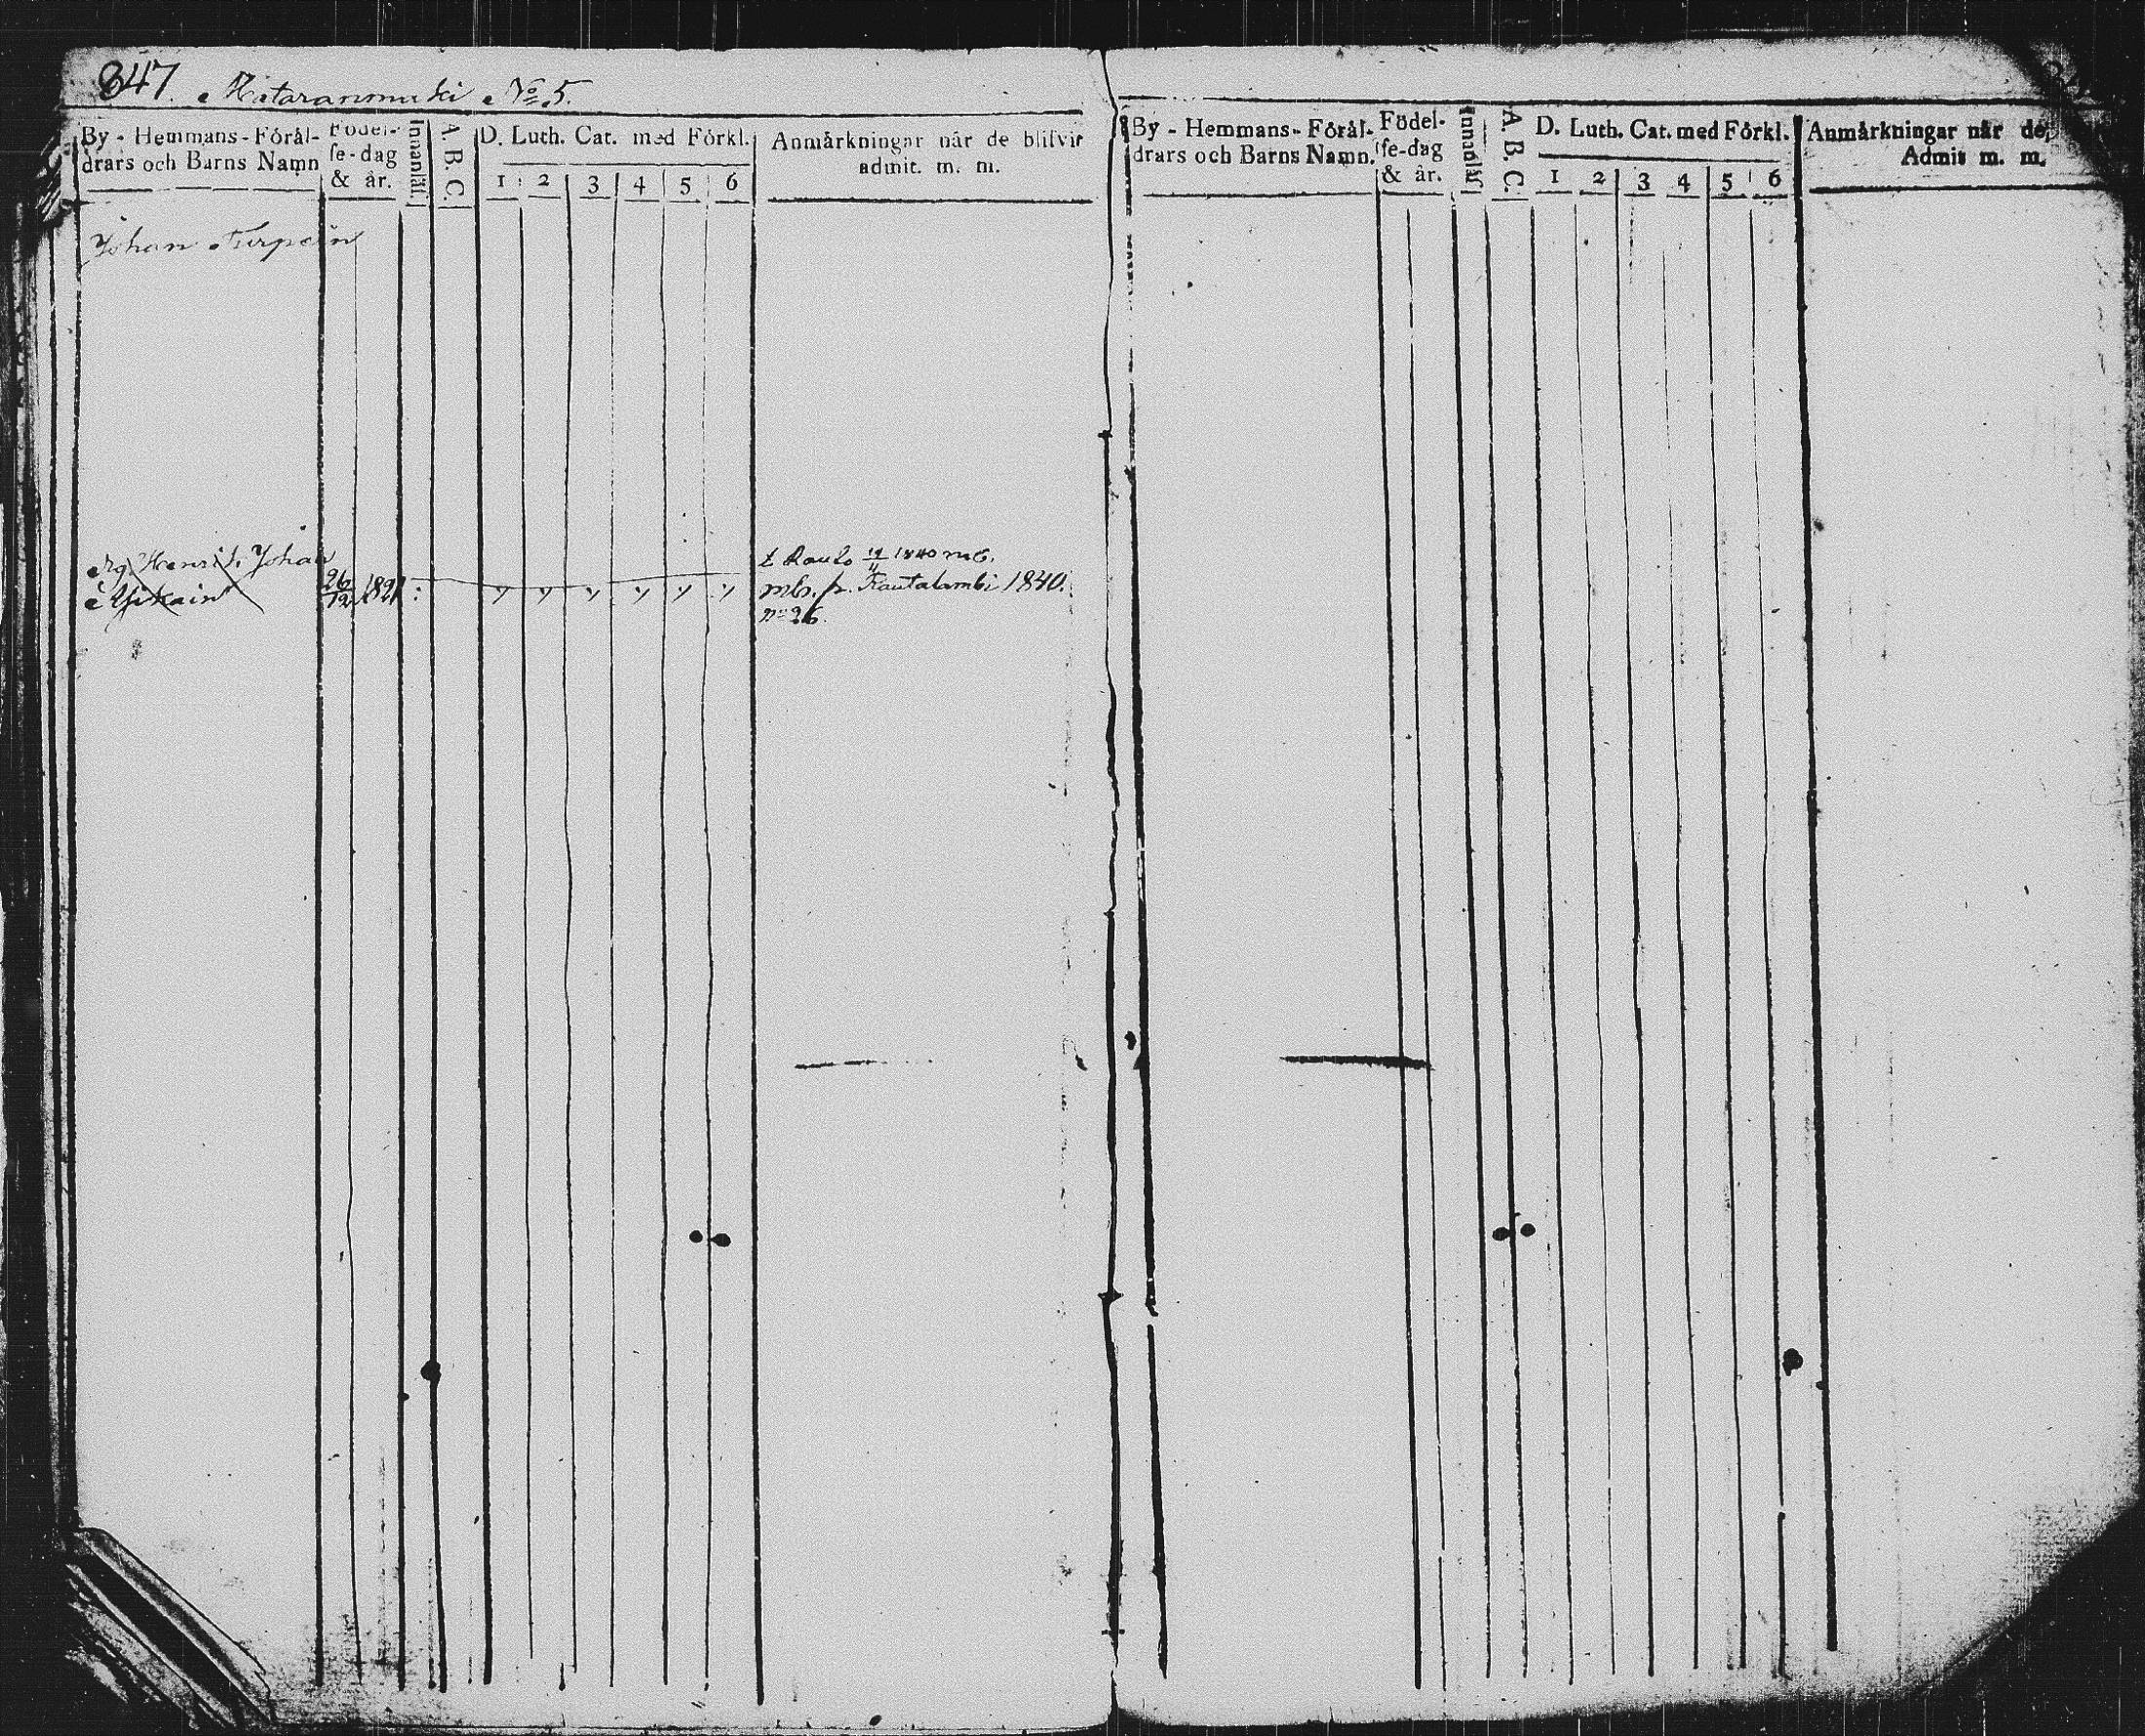 347. Mataranmäki No 5.
By - Hemmans - Förål-
drars och Barns Namn
Födel-
se-dag
& år.
Innanläs.
A. B. C.
D. Luth. Cat. med Förkl.
1 2 3 4 5 6
Anmårkningar når de blifvit
admit. m. m.
Johan Turpein
Henrik Johan
26/12 1821
t Raulo 19/11 1840 mb.
mb. fr. Rautalambi 1840.
no 26.
By - Hemmans - Förål-
drars och Barns Namn.
Födel-
se-dag
& år.
Innanläs
A. B. C.
D. Luth. Cat. med Förkl.
1 2 3 4 5 6
Anmårkningar når de,
Admit m. m.